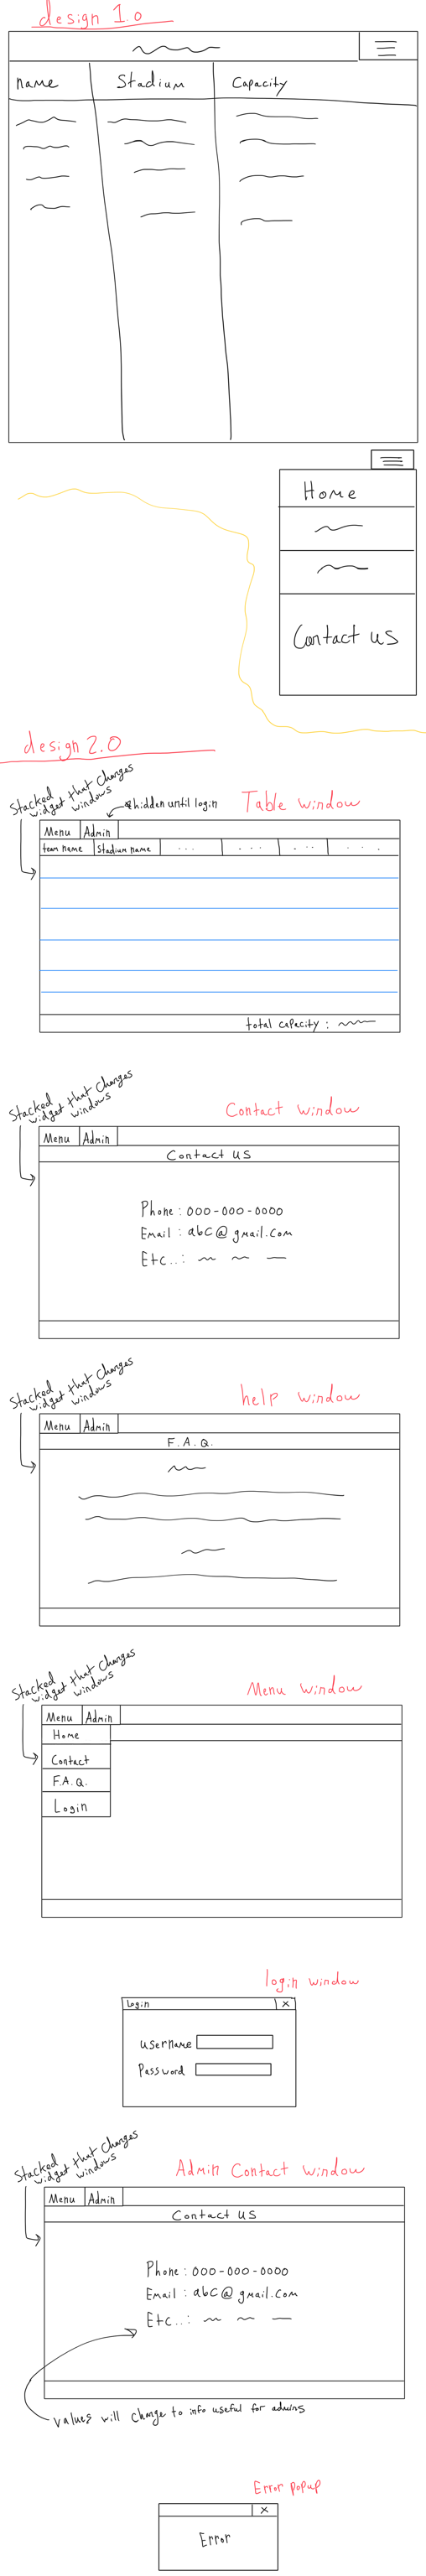 design 1.0
name Stadium Capacity
Home
Contact us
design 2.0
Stacked
widget that changes
windows
hidden until login
Table window
Menu Admin
team name Stadium name ... ... ... ...
total capacity :
Stacked
widget that changes
windows
Contact window
Menu Admin
Contact us
Phone : 000-000-0000
Email : abc@gmail.com
Etc.. :
Stacked
widget that changes
windows
help window
Menu Admin
F.A.Q.
Stacked
widget that changes
windows
Menu window
Menu Admin
Home
Contact
F.A.Q.
Login
login window
Login x
username
Password
Stacked
widget that changes
windows
Admin Contact window
Menu Admin
Contact us
Phone : 000-000-0000
Email : abc@gmail.com
Etc.. :
values will change to info useful for admins
Error popup
x
Error